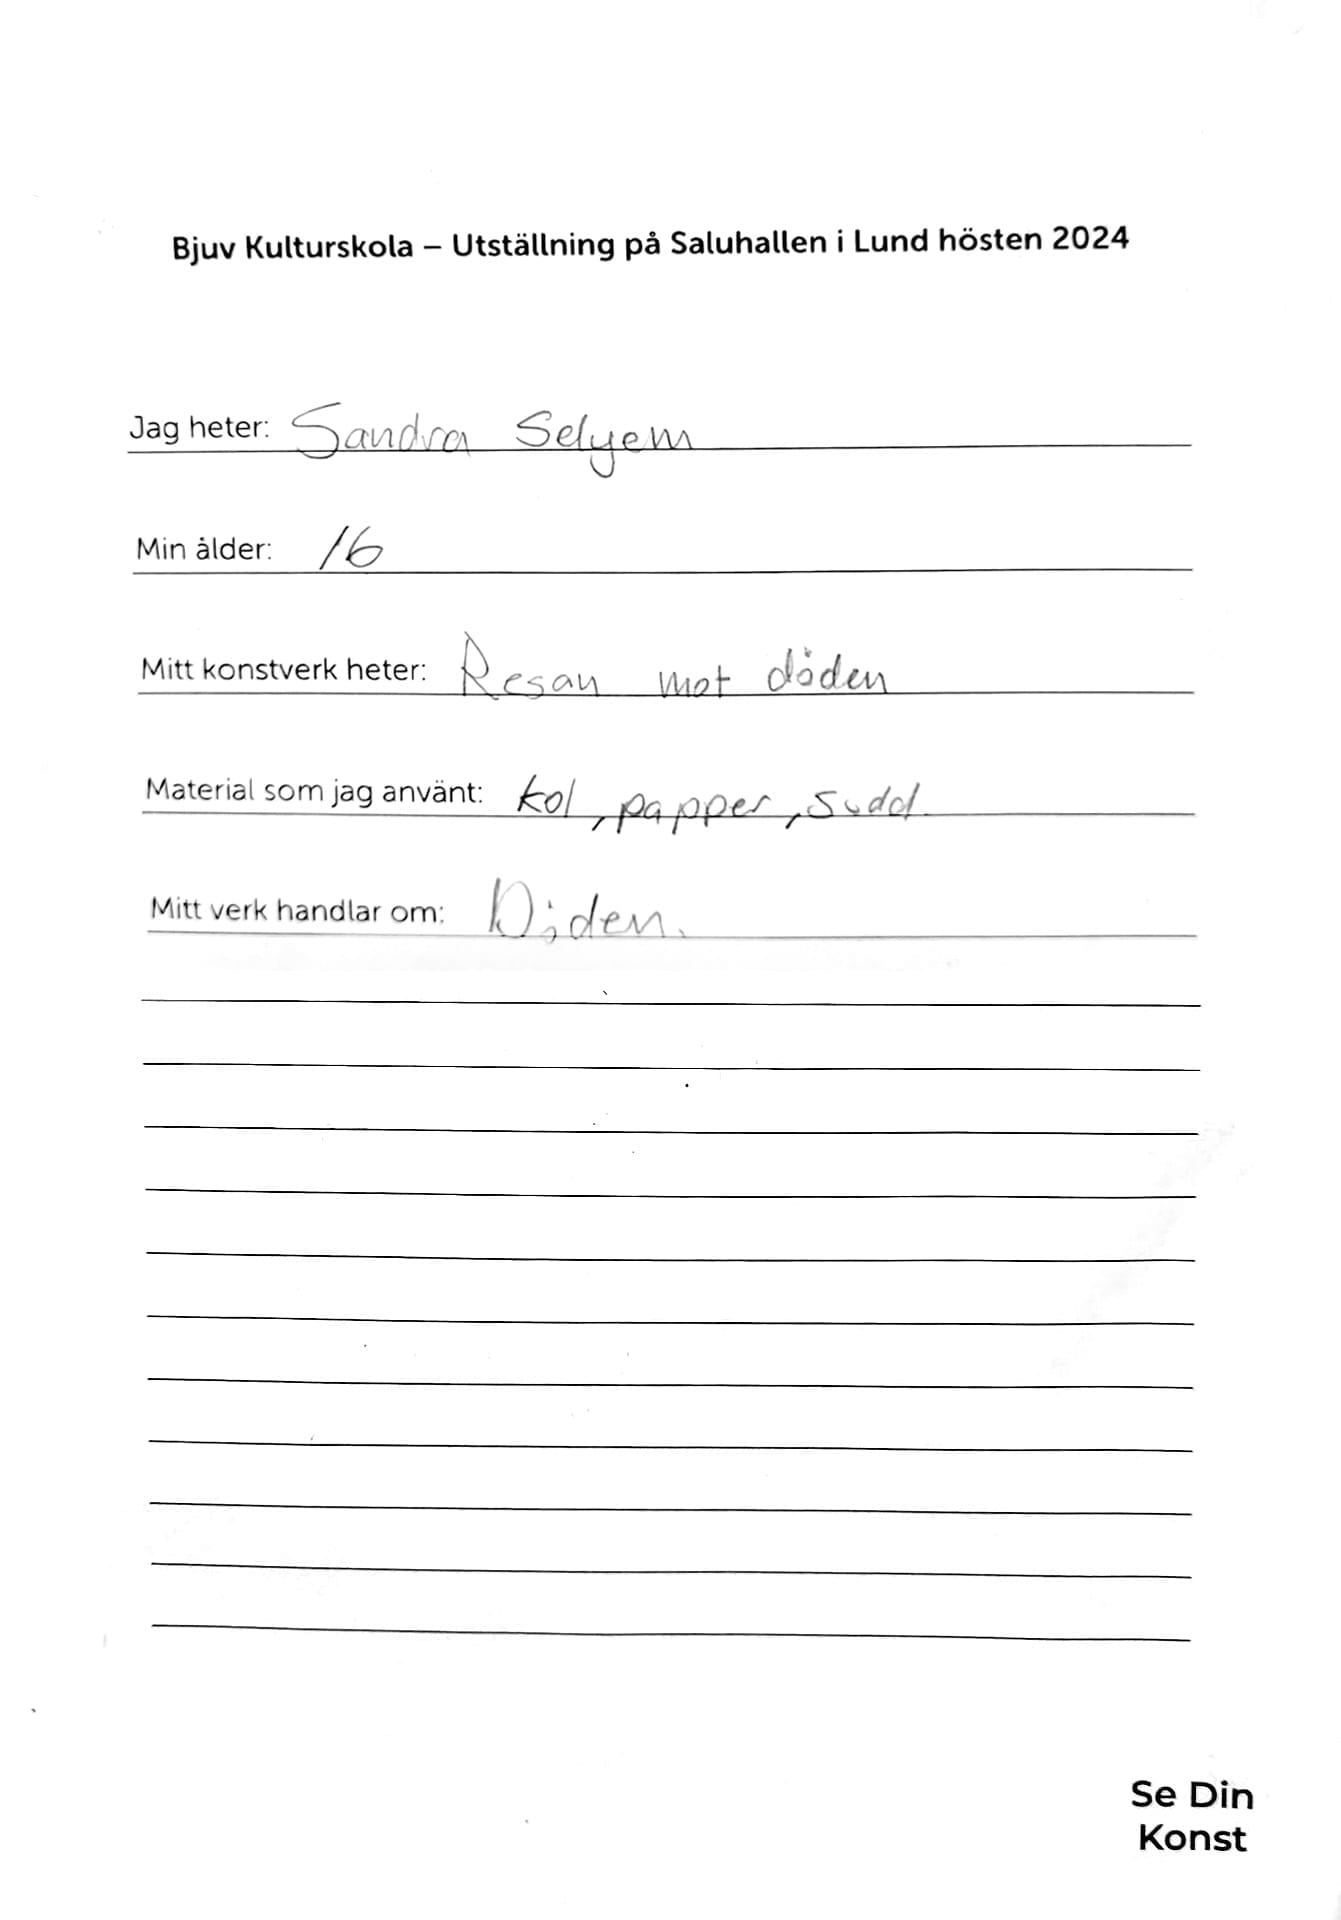 Bjuv Kulturskola – Utställning på Saluhallen i Lund hösten 2024
Jag heter: Sandra Selyem
Min ålder: 16
Mitt konstverk heter: Resan mot döden
Material som jag använt: kol, papper, sudd.
Mitt verk handlar om: Döden.
Se Din
Konst